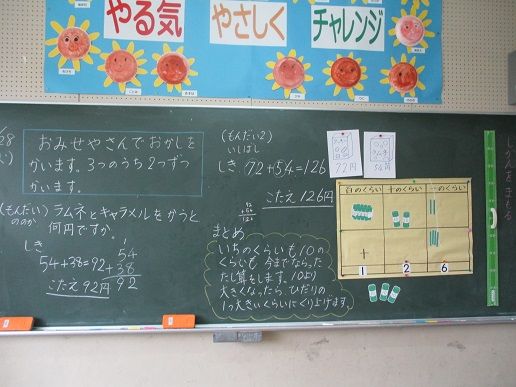 やる気 やさしく チャレンジ
28
おみせやさんでおかしを
かいます。3つのうち2つずつ
かいます。
(もんだい)ラムネとキャラメルをかうと
何円ですか。
しき
54+38=92
54
+38
92
こたえ 92円
(もんだい2)
いしばし
しき 72+54=126
こたえ 126円
まとめ
いちのくらいも10の
くらいも 今までならった
たし算をします。10より
大きくなったら ひだりの
1つ大きいくらいにくり上げます。
72円
54円
百のくらい 十のくらい 一のくらい
+
1 2 6